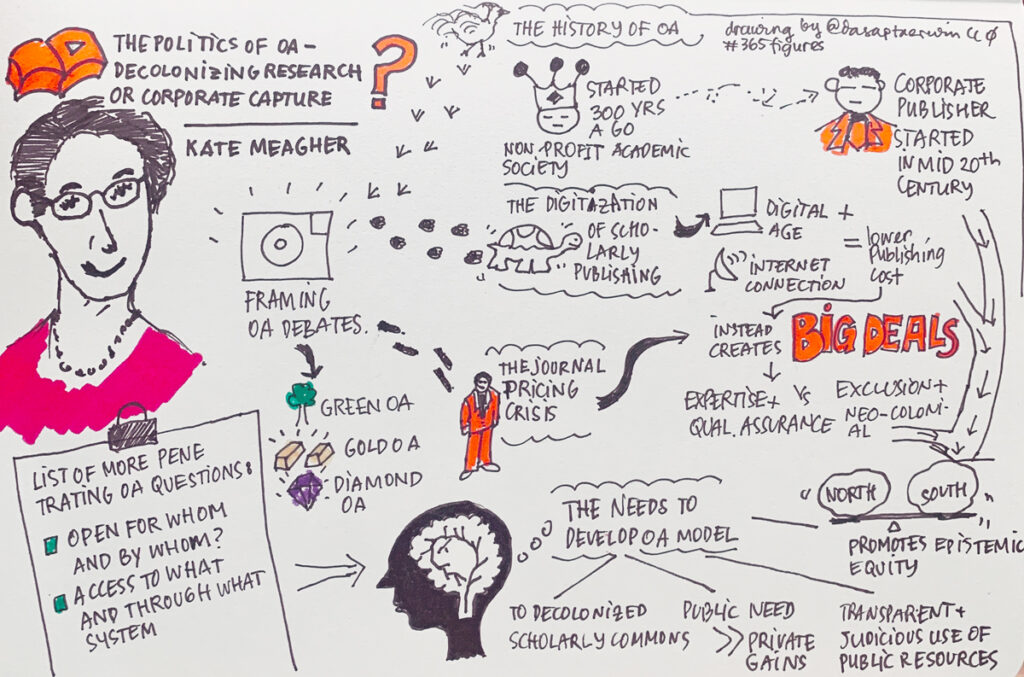 THE POLITICS OF OA -
DECOLONIZING RESEARCH
OR CORPORATE CAPTURE
?
KATE MEAGHER
THE HISTORY OF OA
drawing by @dasaptaerwin CC Ø
#365figures
STARTED
300 YRS
A GO
NON PROFIT ACADEMIC
SOCIETY
CORPORATE
PUBLISHER
STARTED
IN MID 20th
CENTURY
THE DIGITIZATION
OF SCHO-
LARLY
PUBLISHING
DIGITAL +
AGE
INTERNET
CONNECTION
= lower
Publishing
cost
FRAMING
OA DEBATES.
GREEN OA
GOLD OA
DIAMOND
OA
THE JOURNAL
PRICING
CRISIS
INSTEAD
CREATES
BIG DEALS
EXPERTISE+
QUAL. ASSURANCE
VS
EXCLUSION+
NEO-COLONI-
AL
NORTH
SOUTH
PROMOTES EPISTEMIC
EQUITY
LIST OF MORE PENE
TRATING OA QUESTIONS:
OPEN FOR WHOM
AND BY WHOM?
ACCESS TO WHAT
AND THROUGH WHAT
SYSTEM
THE NEEDS TO
DEVELOP OA MODEL
TO DECOLONIZED
SCHOLARLY COMMONS
PUBLIC NEED
>> PRIVATE
GAINS
TRANSPARENT+
JUDICIOUS USE OF
PUBLIC RESOURCES